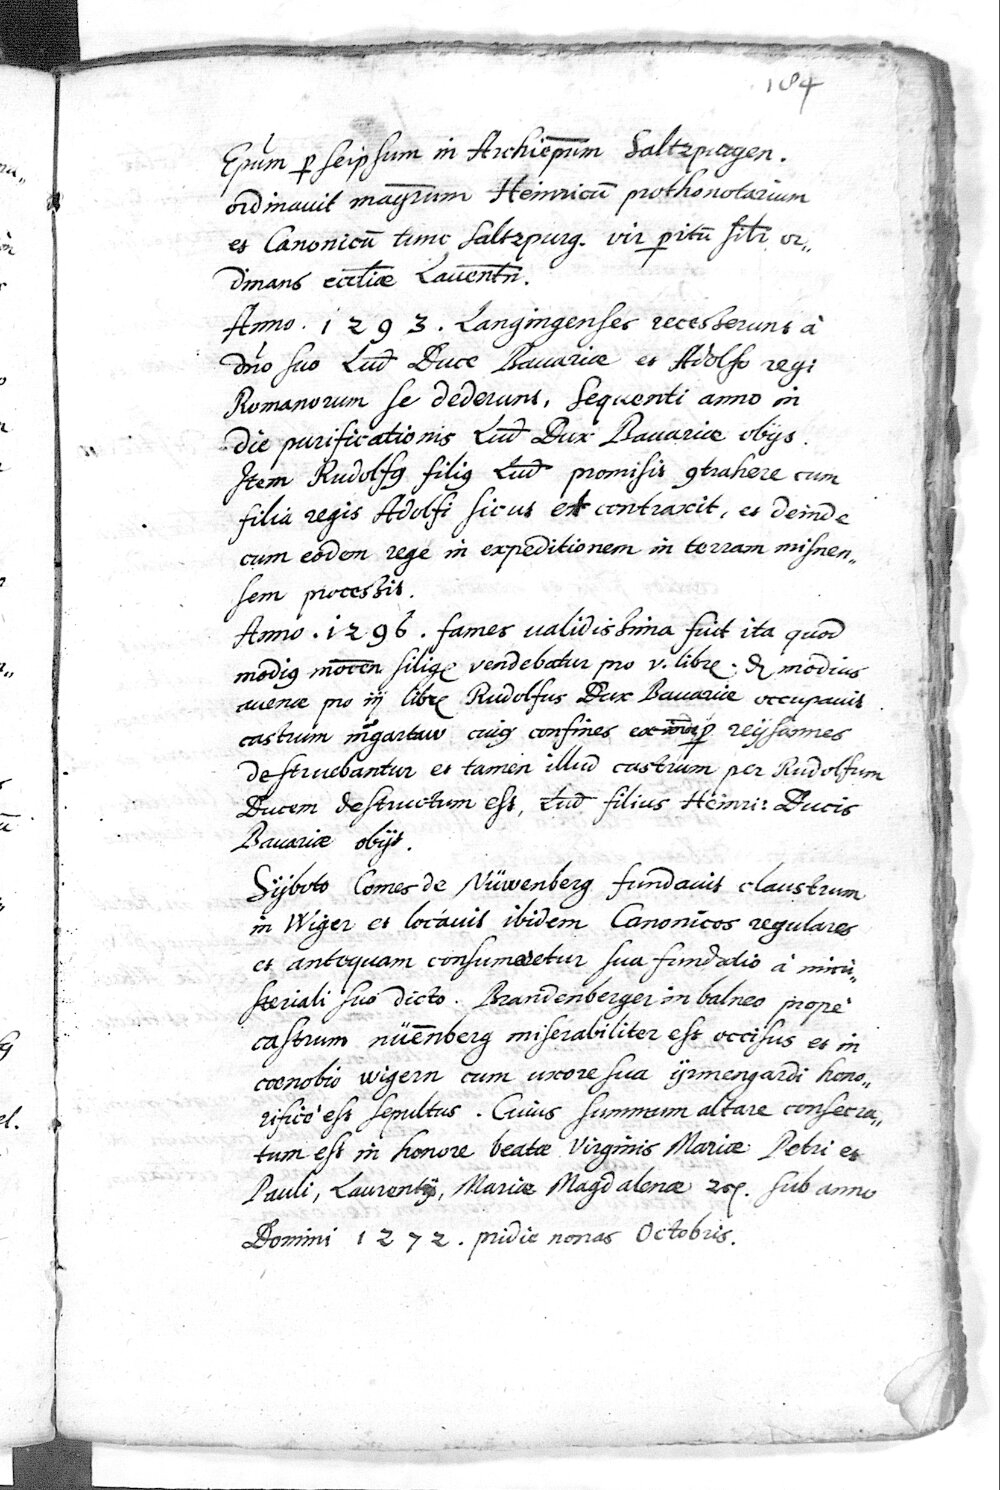 184
Epūm p seipsum in Archiepūm Saltzpurgen.
ordinavit magrum Heinricū prothonotarium
et Canonicū tunc Saltzpurg. vir pitū sibi or„
dinans eccliæ Lauentn̄.
Anno . 1293 . Langingenses recesserunt à
dn̄o suo Lud Duce Bavariæ et Adolfo regi
Romanorum se dederunt, sequenti anno in
die purificationis Lud Dux Bavariæ obijt.
Item Rudolfꝯ filiꝯ Lud promisit ꝯtrahere cum
filia regis Adolfi sicut et contraxit, et deinde
cum eodem rege in expeditionem in terram misnen„
sem processit.
Anno . 1296 . fames validissima fuit ita quod
modiꝯ siligꝭ vendebatur pro v. librꝭ . modius
avenæ pro iij librꝭ Rudolfus Dux Bavariæ occupavit
castrum cuiꝯ confines reijsannes
destruebantur et tamen illud castrum per Rudolfum
Ducem destructum est, Lud filius Heinrici Ducis
Bavariæ obijt.
Sÿboto Comes de Nüwenberg fundavit claustrum
in Wiger et locavit ibidem Canonicos regulares
et antequam consumaretur sua fundatio à mini„
steriali suo dicto . Brandenberger in balneo propè
castrum nüenberg miserabiliter est occisus et in
cœnobio wigern cum uxore sua ÿrmengardi hono„
rificè est sepultus . Cuius summum altare consecra„
tum est in honore beatæ Virginis Mariæ Petri et
Pauli, Laurentij, Mariæ Magdalenæ ꝛc. sub anno
Domini 1272 . pridie nonas Octobris.